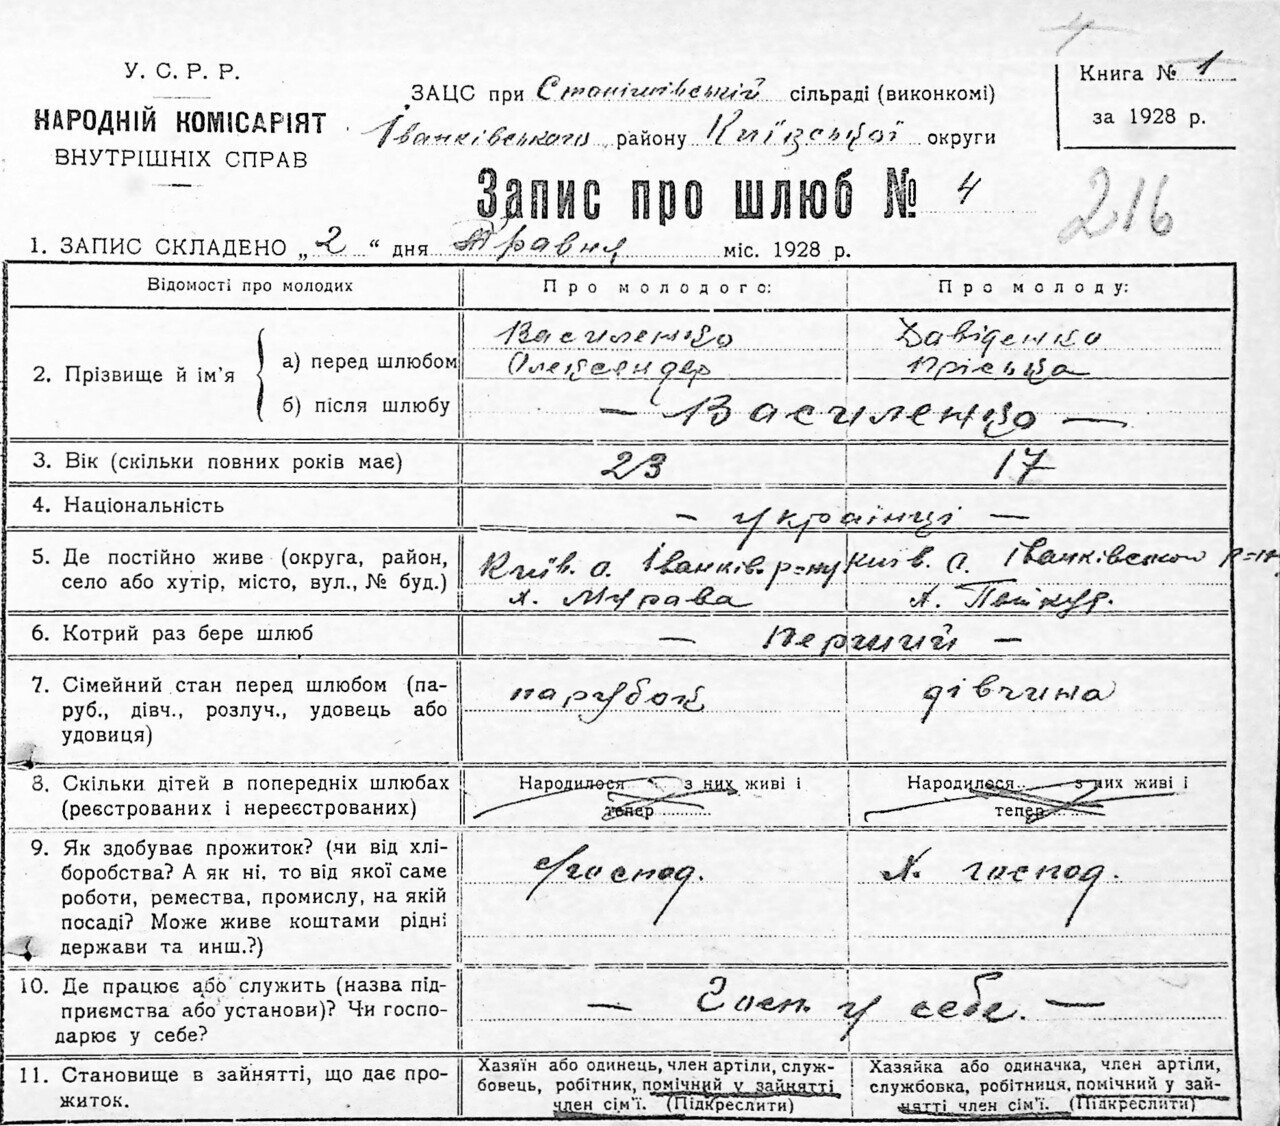 У. С. Р. Р.
НАРОДНІЙ КОМІСАРІЯТ
ВНУТРІШНІХ СПРАВ
ЗАЦС при сільраді (виконкомі)
Іванківського району Київської округи
Книга № 1
за 1928 р.
Запис про шлюб № 4
216
1. ЗАПИС СКЛАДЕНО „2“ дня Травня міс. 1928 р.
Відомості про молодих
Про молодого:
Про молоду:
2. Прізвище й ім'я
а) перед шлюбом
Василенко
Олександер
Давіденко
Пріська
б) після шлюбу
— Василенко —
3. Вік (скільки повних років має)
23
17
4. Національність
— українці —
5. Де постійно живе (округа, район,
село або хутір, місто, вул., № буд.)
Київ. о. Іванків. р-ну
х. Мурава
Київ. о. Іванківського р-ну
х.
6. Котрий раз бере шлюб
— Перший —
7. Сімейний стан перед шлюбом (па-
руб., дівч., розлуч., удовець або
удовиця)
парубок
дівчина
8. Скільки дітей в попередніх шлюбах
(реєстрованих і нереєстрованих)
Народилося з них живі і
тепер
Народилося з них живі і
тепер
9. Як здобуває прожиток? (чи від хлі-
боробства? А як ні, то від якої саме
роботи, ремества, промислу, на якій
посаді? Може живе коштами рідні
держави та инш.?)
госпОд.
х. господ.
10. Де працює або служить (назва під-
приємства або установи)? Чи госпо-
дарює у себе?
— Госп. у себе. —
11. Становище в зайнятті, що дає про-
житок.
Хазяїн або одинець, член артілі, служ-
бовець, робітник, помічний у зайнятті
член сім'ї. (Підкреслити)
Хазяйка або одиначка, член артіли,
службовка, робітниця, помічний у зай-
нятті член сім'ї. (Підкреслити)